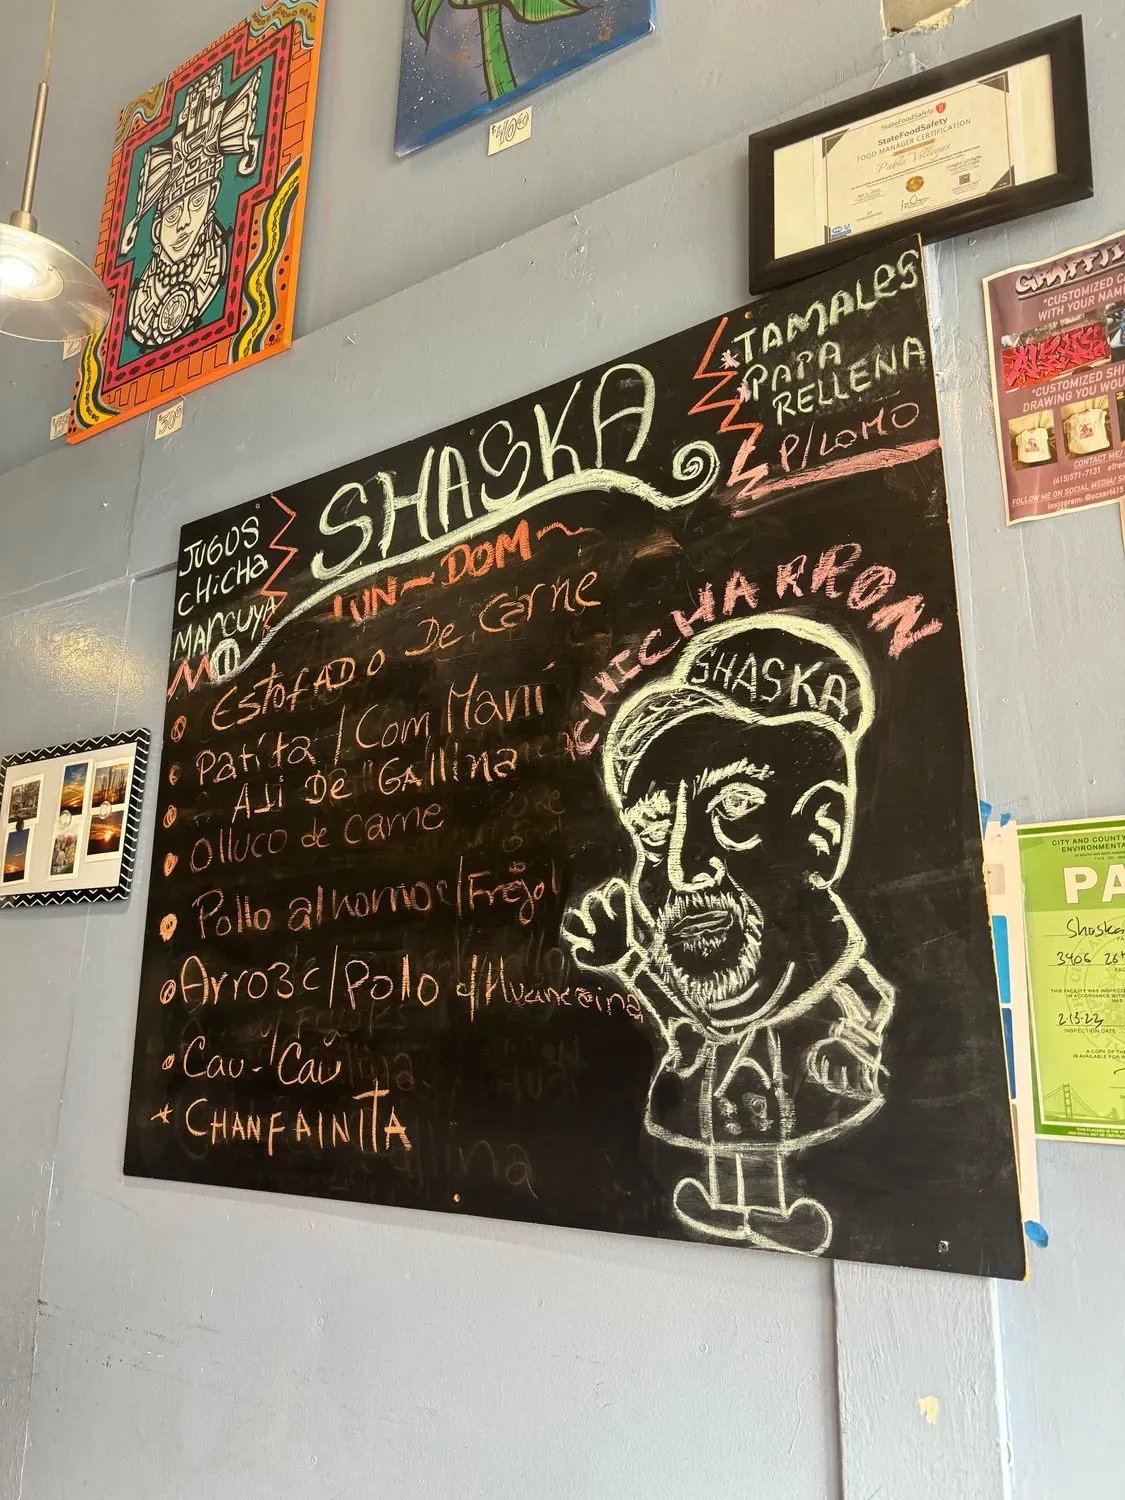 $40.00
StateFoodSafety
StateFoodSafety
FOOD MANAGER CERTIFICATION
Pablo Villegas
GRAFFITI
"CUSTOMIZED
WITH YOUR NAM
"CUSTOMIZED SHI
DRAWING YOU WOU
CONTACT ME/
(415)571-7131 efre
FOLLOW ME ON SOCIAL MEDIA/
Instagram: @ecxart415
TAMALES
PAPA
RELLENA
P/LOMO
SHASKA
JUGOS
CHiCHa
MARCUYA
LUN-DOM
CHICHARRON
SHASKA
EstofADO De Carne
Patita/Com Maní
AJi De GAllina
Olluco de Carne
Pollo al horno c/Frejol
Arro3 c/Pollo c/Huancaina
Cau-Cau
CHANFAINITA
CITY AND COUNTY
ENVIRONMENTA
PA
Shaska
3406 26
THIS FACILITY WAS INSPECTE
IN ACCORDANCE WITH
HAS
2-15-23
INSPECTION DATE
A COPY OF TH
IS AVAILABLE FOR R